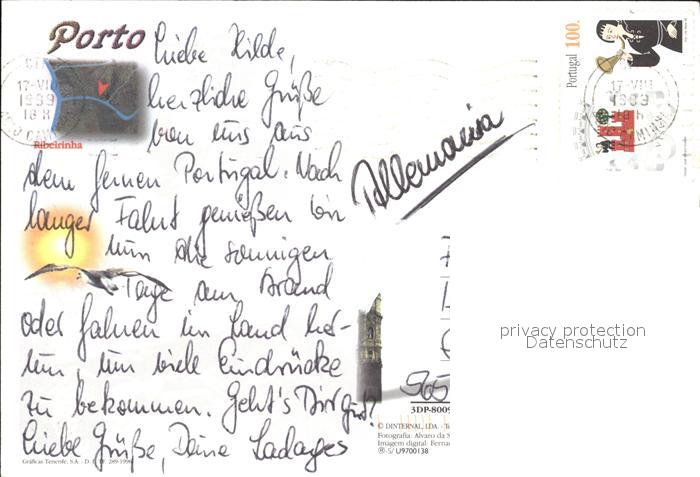 Porto
Liebe Hilde,
herzliche Grüße
von uns aus
Ribeirinha
dem fernen Portugal. Nach
langer Fahrt genießen wir
nun die sonnigen
Tage am Strand
oder fahren im Land her-
um, um viele Eindrücke
zu bekommen. Geht's Dir gut?
Liebe Grüße, Deine Ladages
Gráficas Tenerife, S.A.
Allemania
Portugal 100.
17-VIII
1999
18 H
17-VIII
1999
18 H
privacy protection
Datenschutz
565
3DP-8009
© DINTERNAL, LDA.
Fotografia: Alvaro da S
Imagem digital: Fernan
®-S/ U9700138